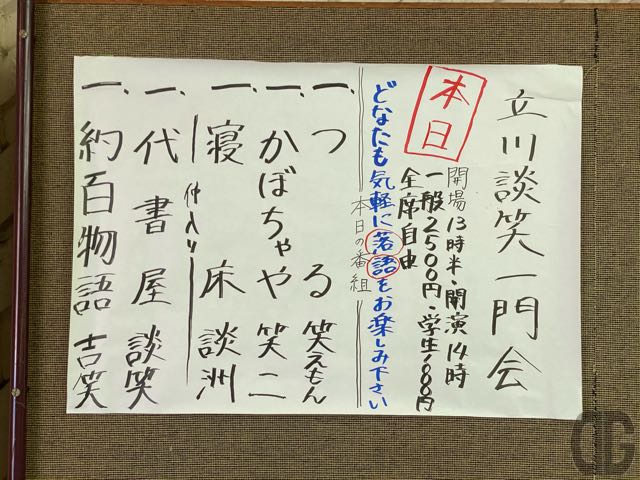 立川談笑一門会
本日
開場13時半・開演14時
一般2500円・学生100円
全席自由
どなたも気軽に落語をお楽しみ下さい
本日の番組
一、つる 笑えもん
一、かぼちゃや 笑二
一、寝床 談洲
仲入り
一、代書屋 談笑
一、約百物語 吉笑